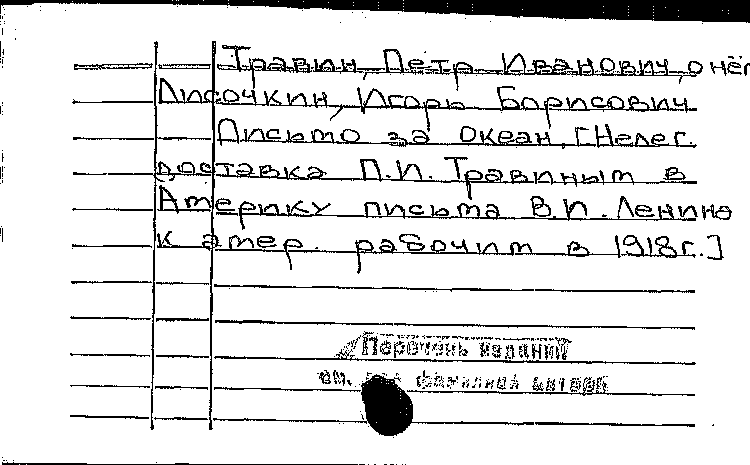 Травин, Петр Иванович, о нём
Лисочкин, Игорь Борисович
Письмо за океан. [Нелег.
доставка П.И. Травиным в
Америку письма В.И. Ленина
к амер. рабочим в 1918г.]
Перечень изданий
см. под фамилией автора